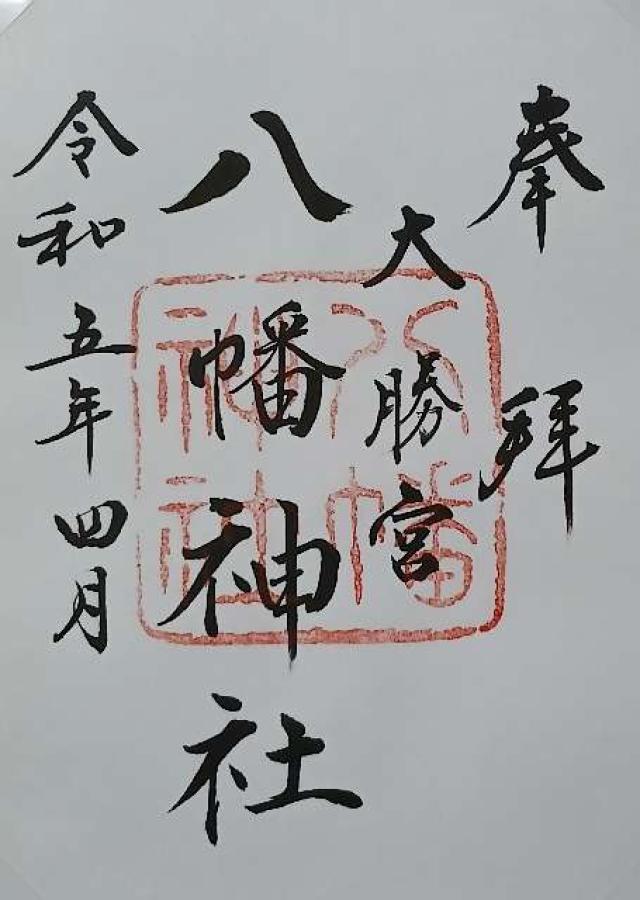 奉拝
大勝宮
八幡神社
令和五年四月
八幡
神社